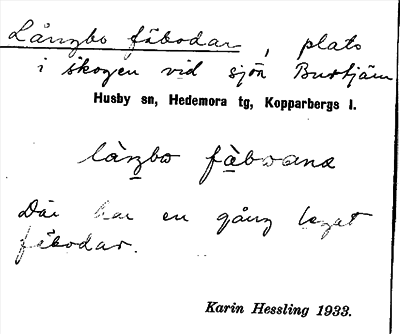 Långbo fäbodar, plats
i skogen vid sjön Burtjärn
Husby sn, Hedemora tg, Kopparbergs l.
làŋbω fä̀bωana
Där har en gång legat
fäbodar.
Karin Hessling 1933.